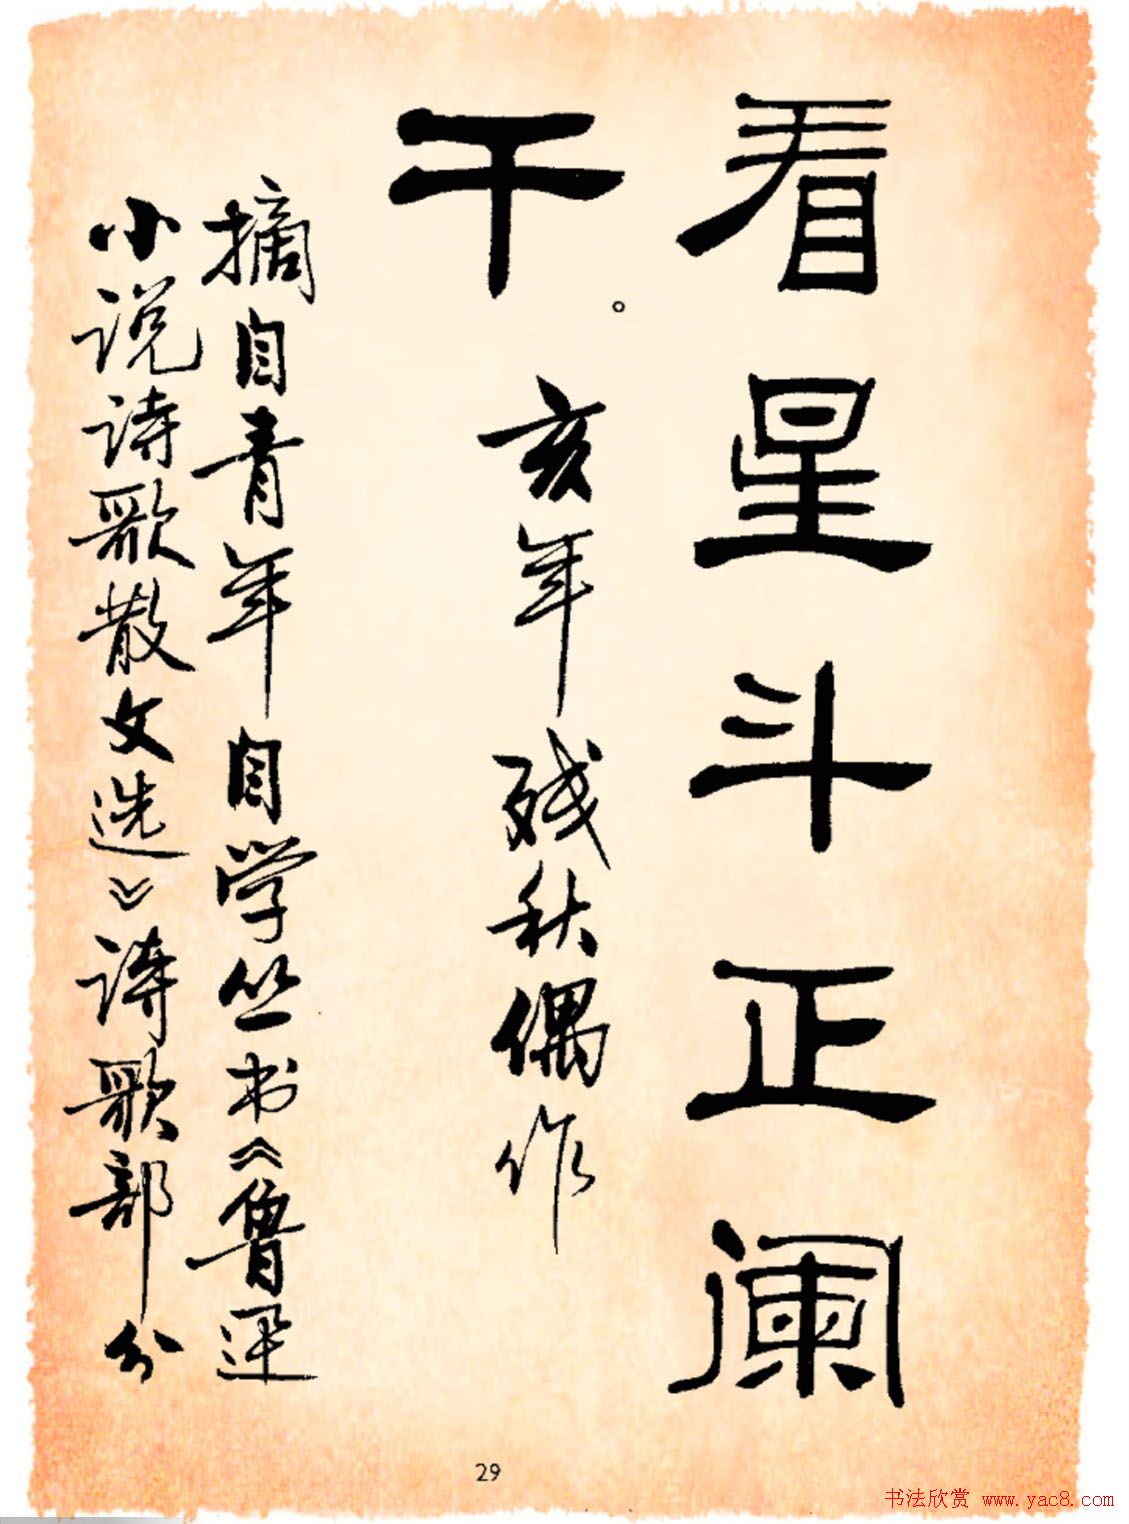 看星斗正阑
干。亥年残秋偶作
摘自青年自学丛书《鲁迅
小说诗歌散文选》诗歌部分
29
书法欣赏 www.yac8.com